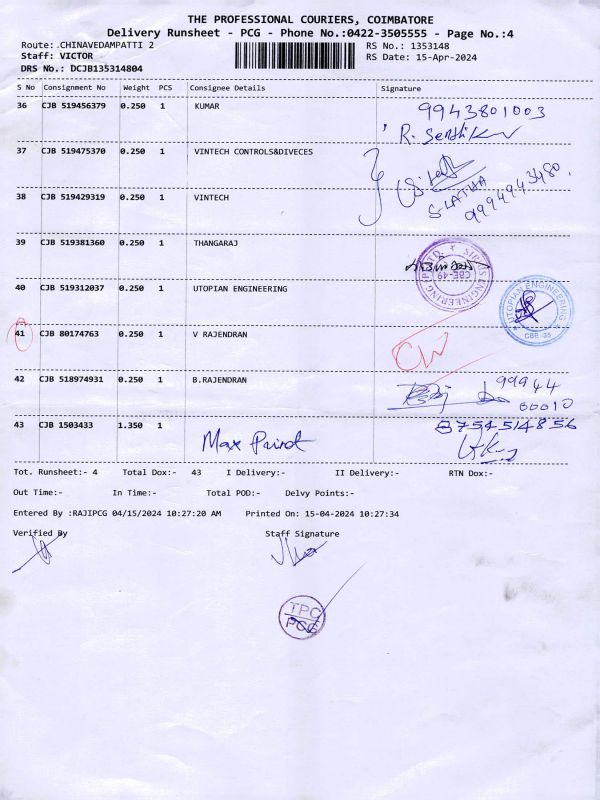 THE PROFESSIONAL COURIERS, COIMBATORE
Delivery Runsheet - PCG - Phone No.:0422-3505555 - Page No.:4
Route: .CHINAVEDAMPATTI 2
RS No.: 1353148
Staff: VICTOR
RS Date: 15-Apr-2024
DRS No.: DCJB135314804
S No Consignment No Weight PCS Consignee Details Signature
36 CJB 519456379 0.250 1 KUMAR 9943801003
37 CJB 519475370 0.250 1 VINTECH CONTROLS&DIVECES
S-LATHA
9994943480
38 CJB 519429319 0.250 1 VINTECH
39 CJB 519381360 0.250 1 THANGARAJ
CBE-49
40 CJB 519312037 0.250 1 UTOPIAN ENGINEERING
UTOPIAN ENGINEERING
CBE-35
41 CJB 80174763 0.250 1 V RAJENDRAN
42 CJB 518974931 0.250 1 B.RAJENDRAN 99944
00010
43 CJB 1503433 1.350 1 8754514856
Tot. Runsheet:- 4 Total Dox:- 43 I Delivery:- II Delivery:- RTN Dox:-
Out Time:- In Time:- Total POD:- Delvy Points:-
Entered By :RAJIPCG 04/15/2024 10:27:20 AM Printed On: 15-04-2024 10:27:34
Verified By Staff Signature
TPC
PCG